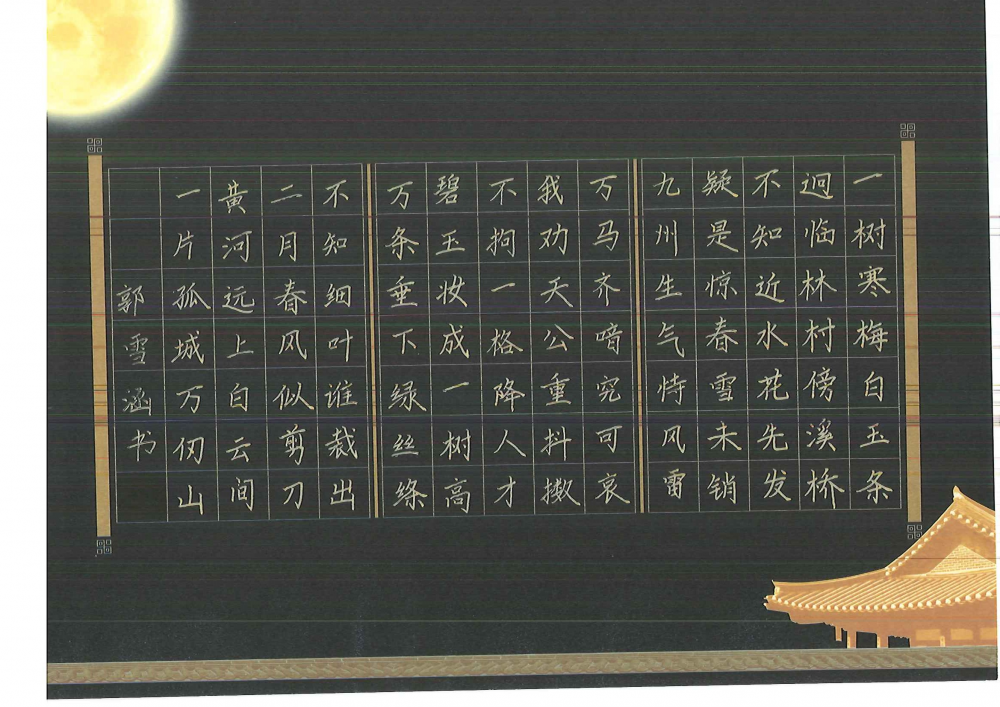 一树寒梅白玉条
迥临林村傍溪桥
不知近水花先发
疑是惊春雪未销
九州生气恃风雷
万马齐喑究可哀
我劝天公重抖擞
不拘一格降人才
碧玉妆成一树高
万条垂下绿丝绦
不知细叶谁裁出
二月春风似剪刀
黄河远上白云间
一片孤城万仞山
郭雪涵书